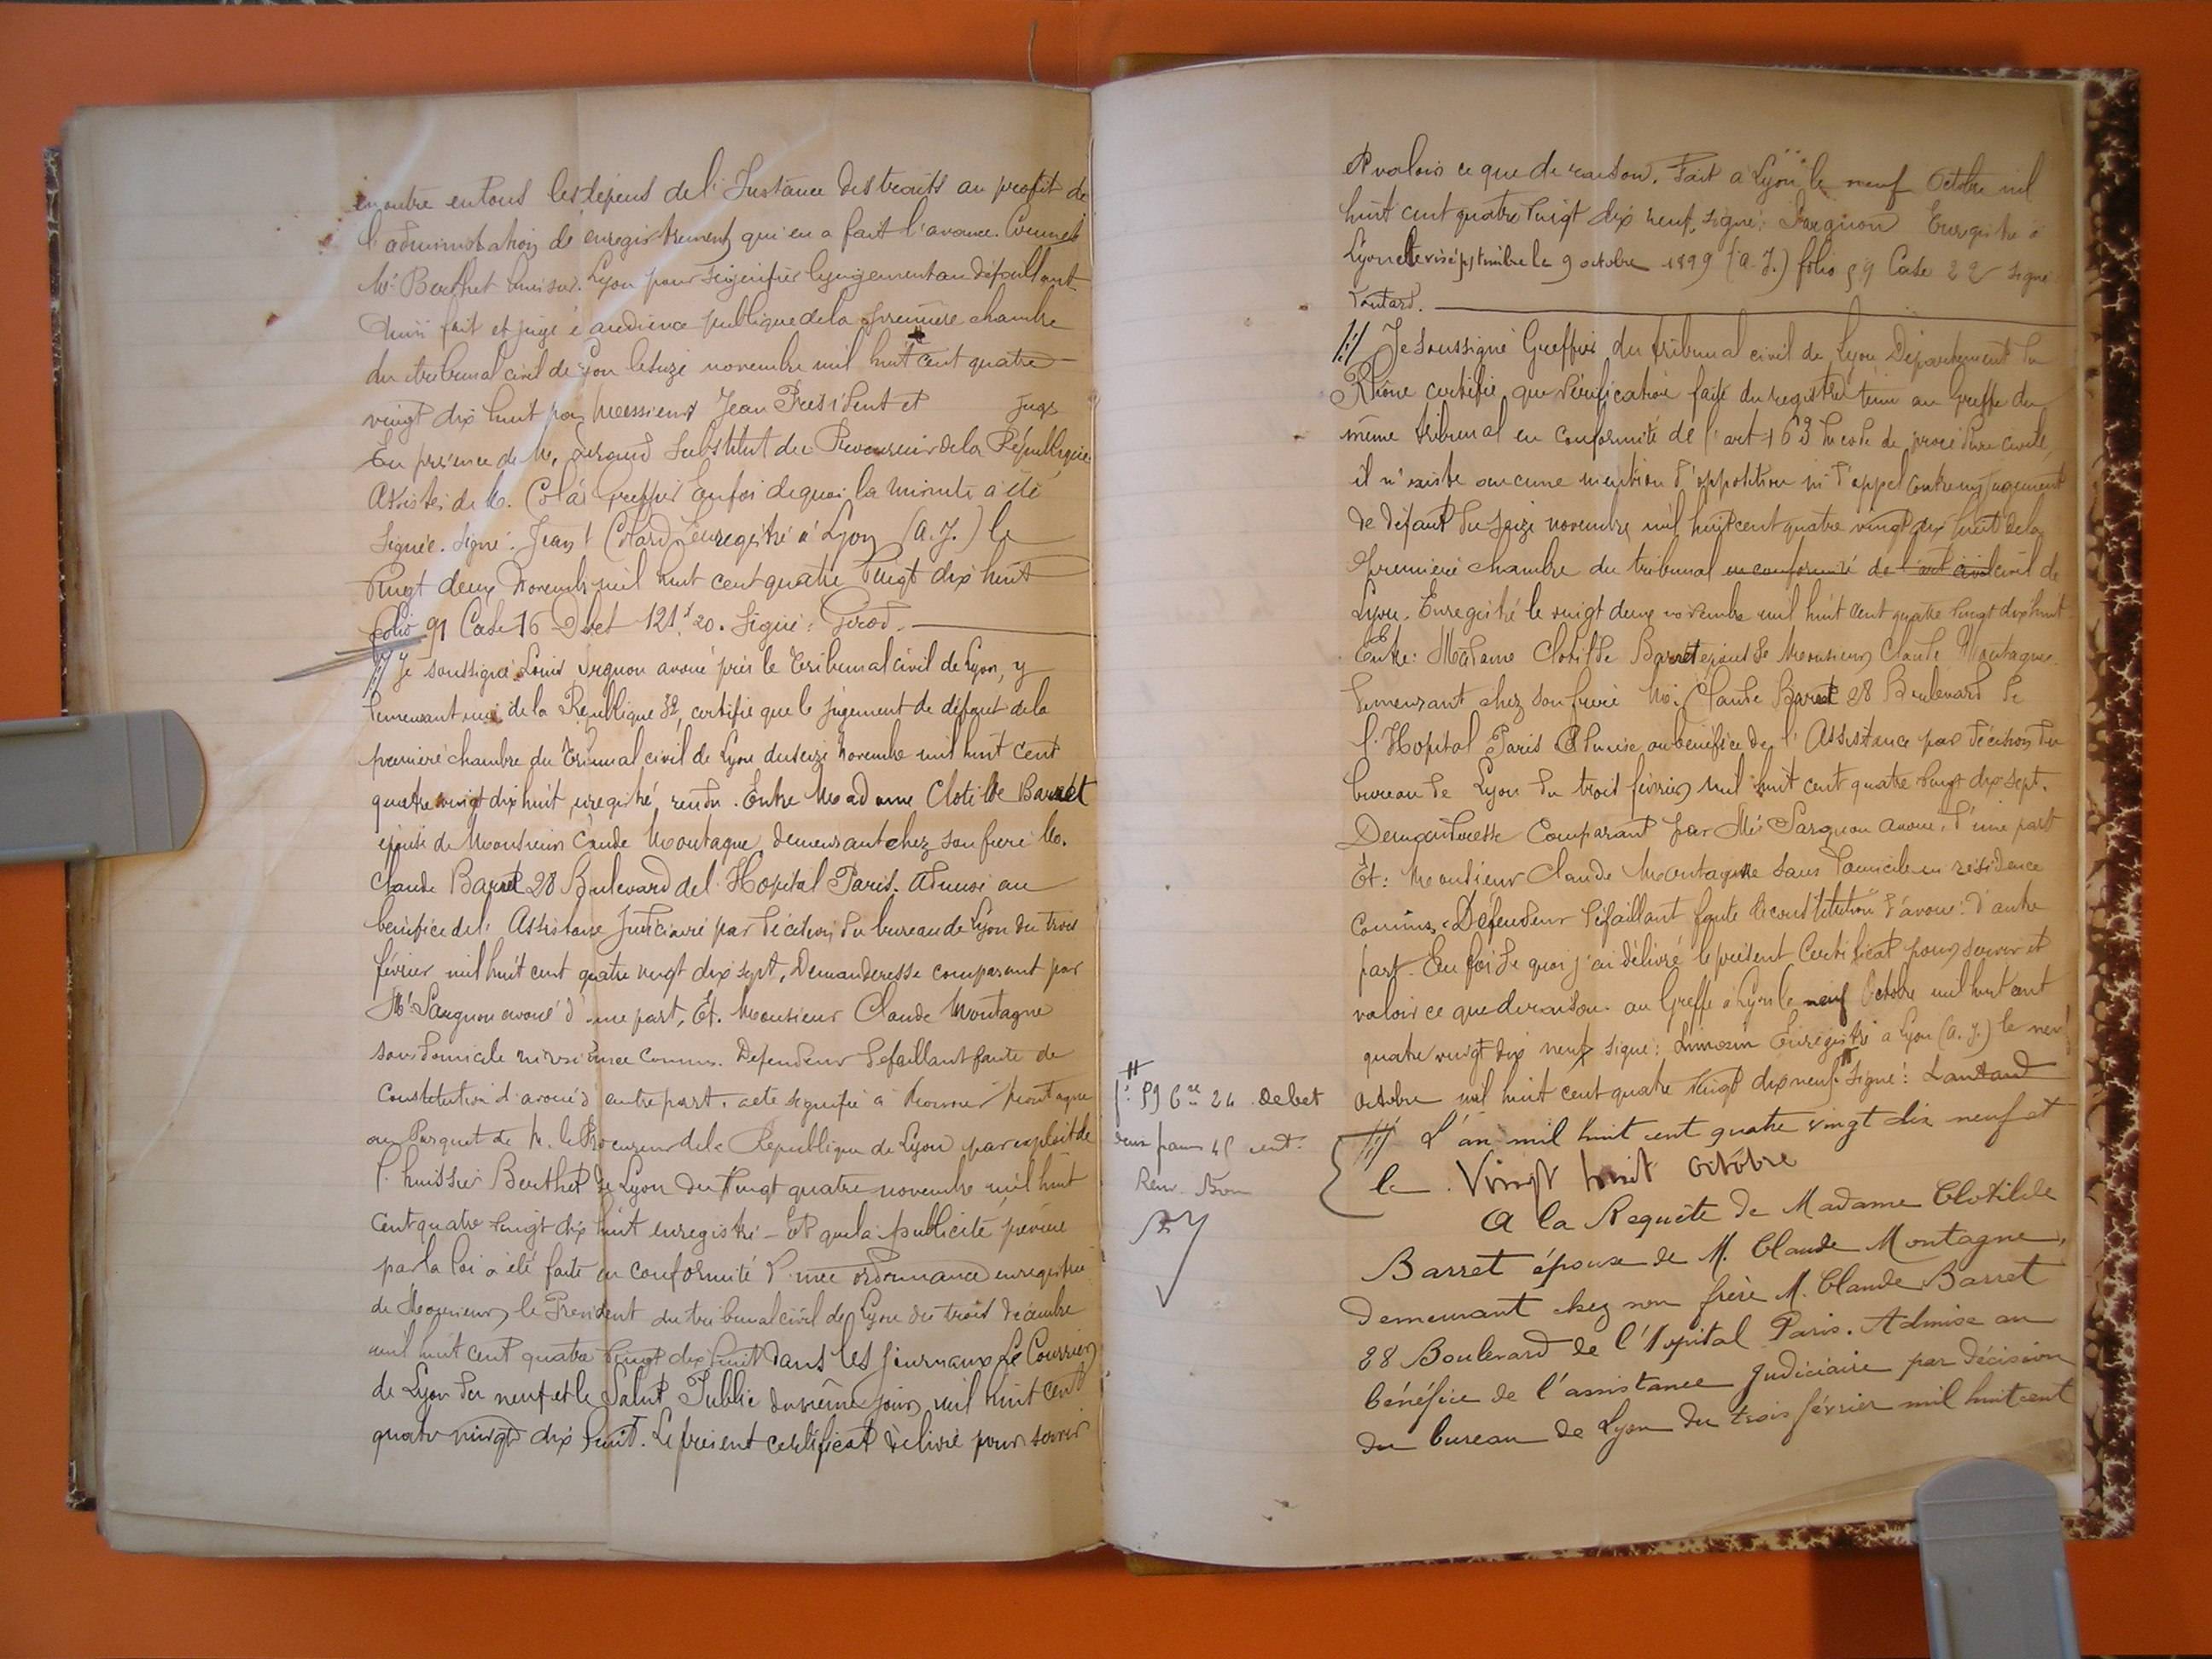 en outre en tous les dépens de l'Instance distraits au profit de
l'administration de enregistrement qui en a fait l'avance. Commet
Me Berthet huissier Lyon pour signifier le jugement au défaillant
Ainsi fait et jugé à audience publique de la première chambre
du tribunal civil de Lyon le seize novembre mil huit cent quatre
vingt dix huit par Messieurs Jean Président et juge
En présence de M. Substitut du Procureur de la République
Assistés de M. Colas greffier En foi de quoi la minute a été
signée. Signé. Jean Colard enregistré à Lyon (A.J.) le
Vingt deux Novembre mil huit cent quatre vingt dix huit
folio 91 Case 16 Debet 121f 20. Signé: Girod.
Je soussigné Louis avoué près le Tribunal civil de Lyon, y
demeurant rue de la République 52, certifie que le jugement de défaut de la
première chambre du Tribunal civil de Lyon du seize Novembre mil huit cent
quatre vingt dix huit, enregistré, rendu. Entre Madame Clotilde Barret
épouse de Monsieur Claude Montagne demeurant chez son frère M.
Claude Barret 28 Bulevard de l'Hopital Paris. Admise au
bénéfice de l'Assistance Judiciaire par décision du bureau de Lyon du trois
février mil huit cent quatre vingt dix sept, Demanderesse comparant par
Me Sargnon avoué d'une part, Et. Monsieur Claude Montagne
sans domicile ni résidence connus. Défendeur défaillant faute de
Constitution d'avoué d'autre part. acte signifié à Monsieur Montagne
au Parquet de M. le Procureur de la République de Lyon par exploit de
l'huissier Berthet de Lyon du Vingt quatre novembre mil huit
cent quatre vingt dix huit enregistré - Et que la publicité prévue
par la loi a été faite en conformité d'une ordonnance enregistrée
de Monsieur le Président du tribunal civil de Lyon du trois décembre
mil huit cent quatre vingt dix huit dans les Journaux Le Courrier
de Lyon du neuf et le Salut Public du même jour mil huit cent
quatre vingt dix huit. Le présent certificat délivré pour servir
et valoir ce que de raison. Fait à Lyon le neuf Octobre mil
huit cent quatre vingt dix neuf, signé: Sargnon Enregistré à
Lyon et visé p. timbre le 9 octobre 1899 (A.J.) folio 59 Case 22 signé
Lantard.
Je soussigné Greffier du tribunal civil de Lyon Département du
Rhône certifie que vérification faite du registre tenu au greffe du
même tribunal en conformité de l'art 163 du code de procédure civile,
il n'existe aucune mention d'opposition ni d'appel contre un jugement
de défaut du seize novembre mil huit cent quatre vingt dix huit de la
première chambre du tribunal en conformité de l'art civil civil de
Lyon. Enregistré le vingt deux novembre mil huit cent quatre vingt dix huit
Entre: Madame Clotilde Barret épouse de Monsieur Claude Montagne
demeurant chez son frère M. Claude Barret 28 Bulevard de
l'Hopital Paris Admise au bénéfice de l'Assistance par décision du
bureau de Lyon du trois février mil huit cent quatre vingt dix sept.
Demanderesse Comparant par Me Sargnon avoué, d'une part
Et: Monsieur Claude Montagne sans domicile ni résidence
connus, Défendeur défaillant faute de constitution d'avoué: d'autre
part. En foi de quoi j'ai délivré le présent Certificat pour servir et
valoir ce que de raison. au Greffe à Lyon le neuf Octobre mil huit cent
quatre vingt dix neuf signé: Limozin Enregistré à Lyon (A.J.) le neuf
Octobre mil huit cent quatre vingt dix neuf. signé: Lantard
fo 59 Cse 24 debet
deux francs 45 cent.
Renv. Bon
L'an mil huit cent quatre vingt dix neuf et
le Vingt huit octobre
A la Requête de Madame Clotilde
Barret épouse de M. Claude Montagne,
demeurant chez son frère M. Claude Barret
28 Boulevard de l'Hopital Paris. Admise au
bénéfice de l'assistance judiciaire par décision
du bureau de Lyon du trois février mil huit cent